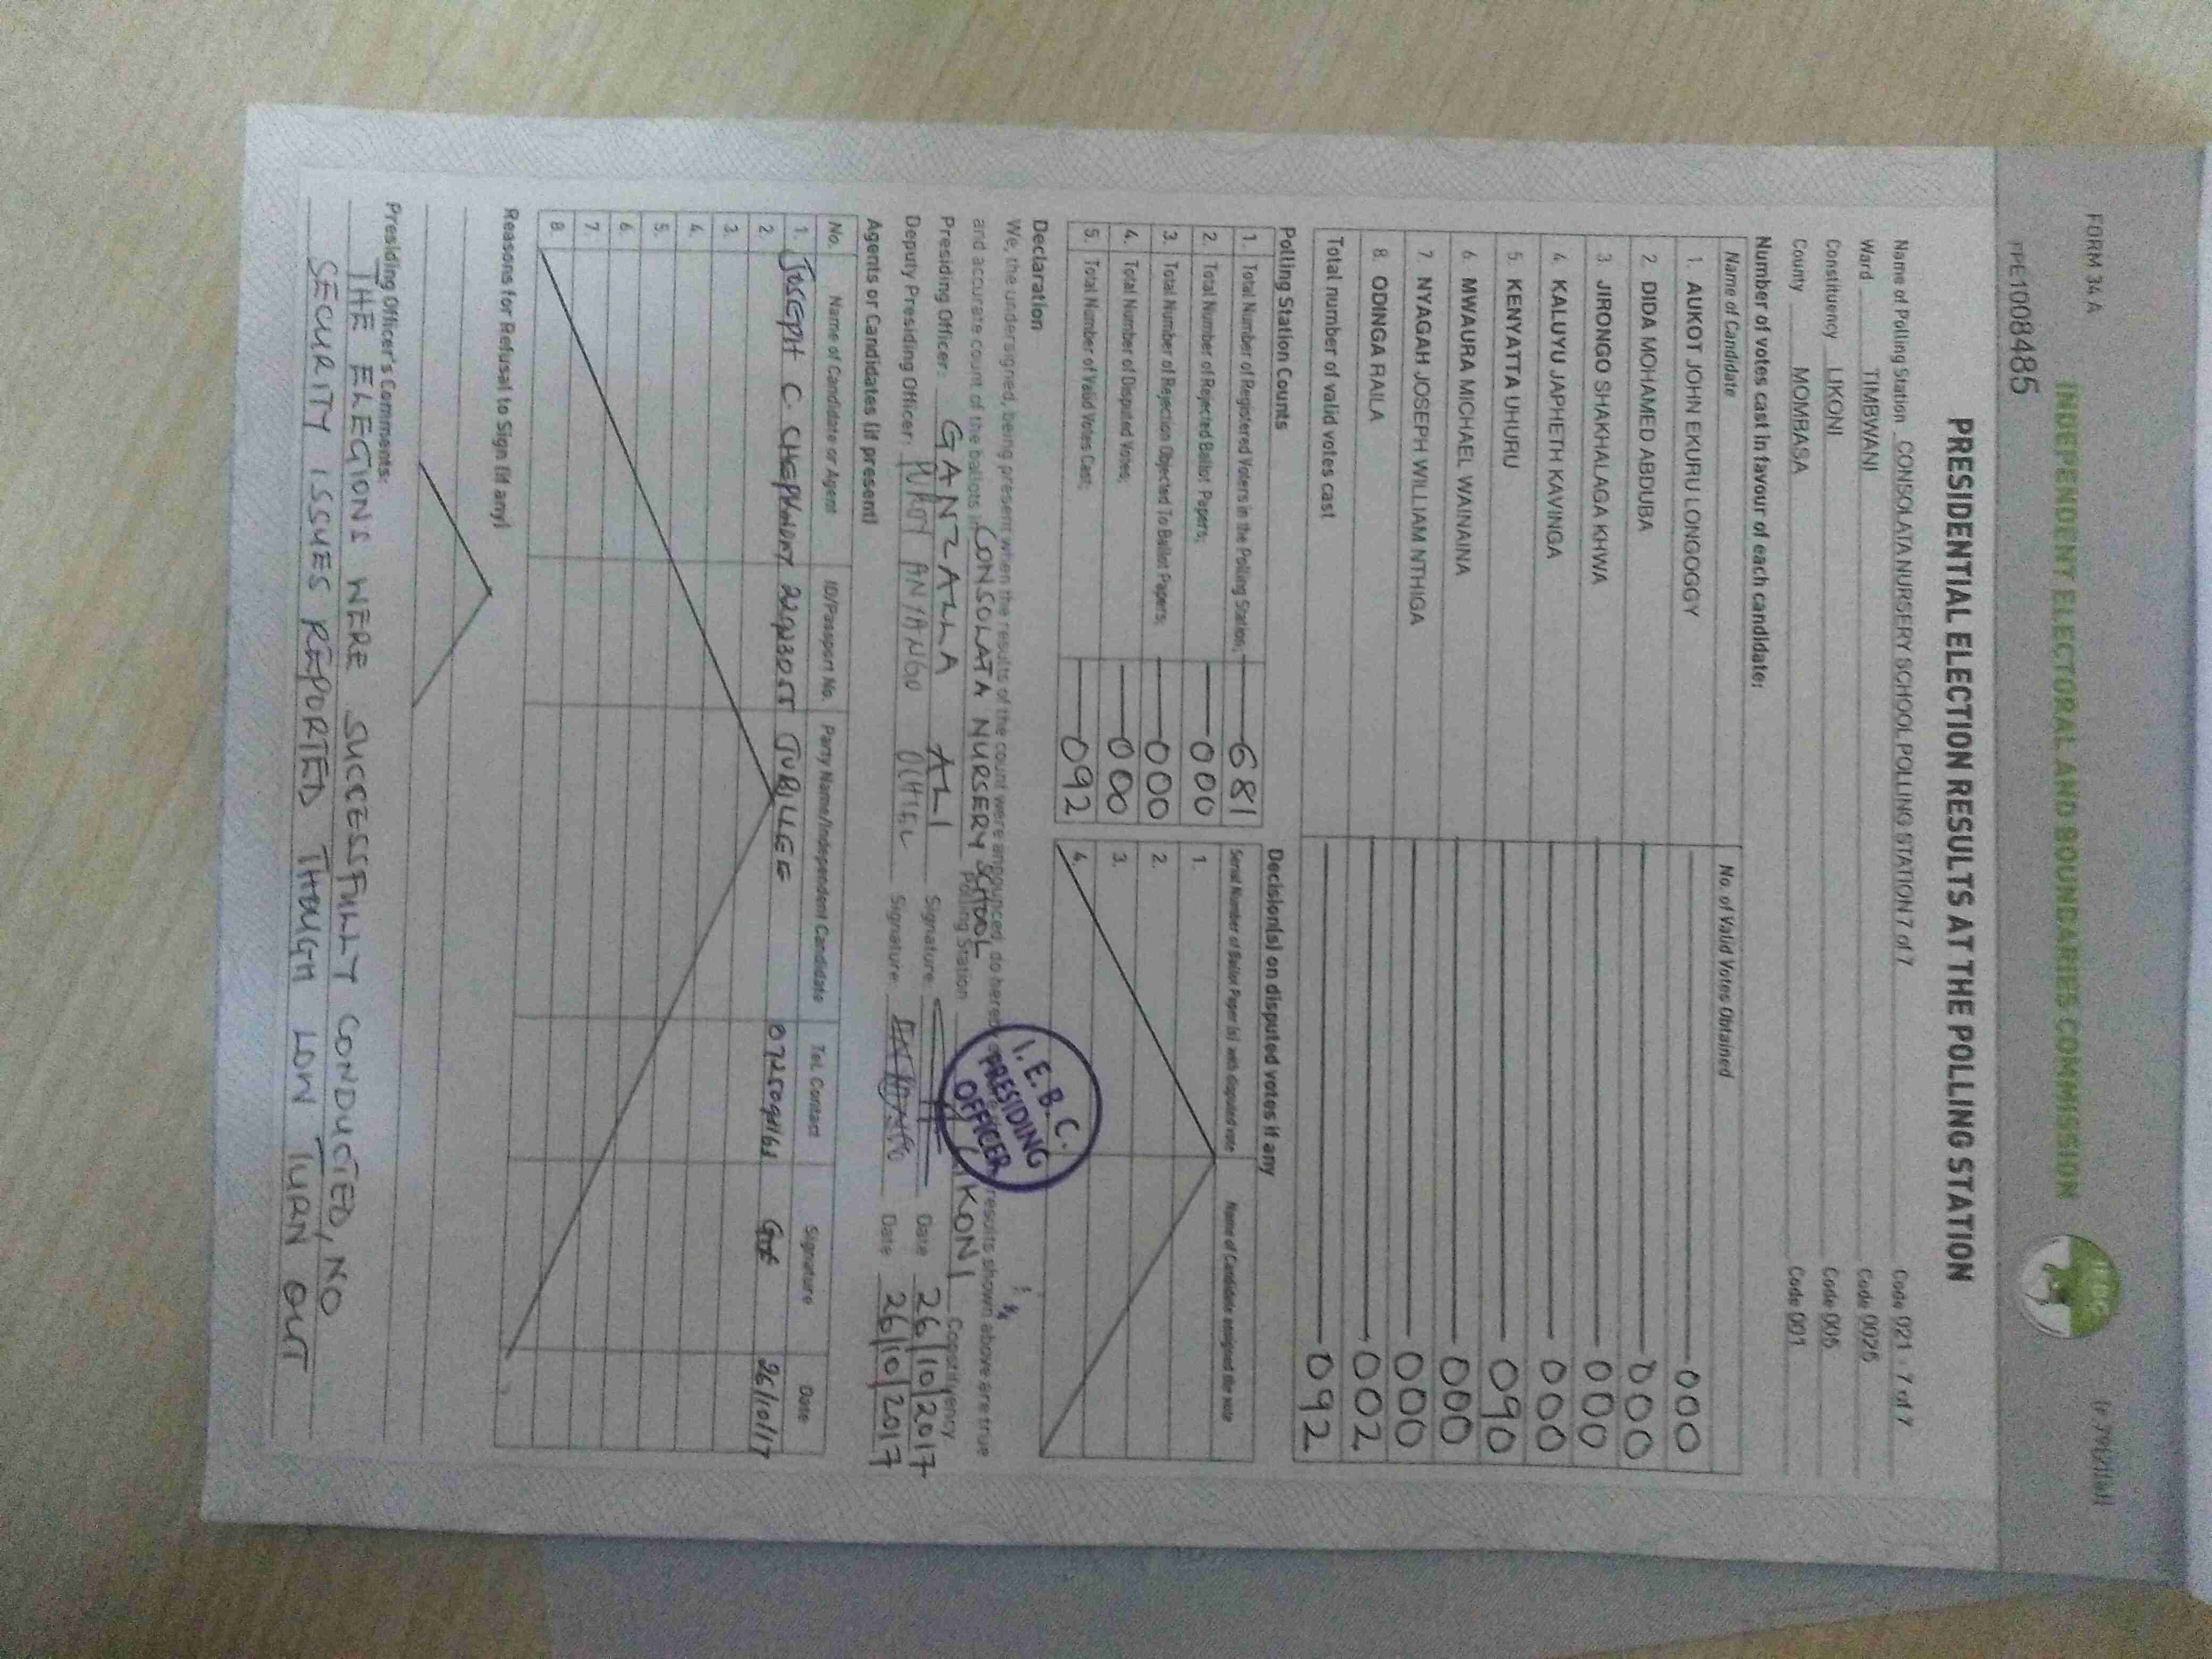 FORM 34 A
INDEPENDENT ELECTORAL AND BOUNDARIES COMMISSION
IEBC
PPE1008485
PRESIDENTIAL ELECTION RESULTS AT THE POLLING STATION
Name of Polling Station CONSOLATA NURSERY SCHOOL POLLING STATION 7 of 7 Code 021 - 7 of 7
Ward TIMBWANI Code 0025
Constituency LIKONI Code 005
County MOMBASA Code 001
Number of votes cast in favour of each candidate:
Name of Candidate No. of Valid Votes Obtained
1. AUKOT JOHN EKURU LONGOGGY 000
2. DIDA MOHAMED ABDUBA 000
3. JIRONGO SHAKHALAGA KHWA 000
4. KALUYU JAPHETH KAVINGA 000
5. KENYATTA UHURU 090
6. MWAURA MICHAEL WAINAINA 000
7. NYAGAH JOSEPH WILLIAM NTHIGA 000
8. ODINGA RAILA 002
Total number of valid votes cast 092
Polling Station Counts
1. Total Number of Registered Voters in the Polling Station; 681
2. Total Number of Rejected Ballot Papers; 000
3. Total Number of Rejection Objected To Ballot Papers; 000
4. Total Number of Disputed Votes; 000
5. Total Number of Valid Votes Cast; 092
Decision(s) on disputed votes if any
Serial Number of Ballot Paper (s) with disputed vote Name of Candidate assigned the vote
1.
2.
3.
4.
Declaration
We, the undersigned, being present when the results of the count were announced, do hereby results shown above are true
and accurate count of the ballots in CONSOLATA NURSERY SCHOOL Polling Station LIKONI Constituency
I.E.B.C. PRESIDING OFFICER
Presiding Officer: GANZALLA ALI Signature: Date 26/10/2017
Deputy Presiding Officer: ANYANGO Signature: Date 26/10/2017
Agents or Candidates (if present)
No. Name of Candidate or Agent ID/Passport No. Party Name/Independent Candidate Tel. Contact Signature Date
1. JOSEPH C. JUBILEE 26/10/17
2.
3.
4.
5.
6.
7.
8.
Reasons for Refusal to Sign (if any)
Presiding Officer's Comments:
THE ELECTIONS WERE SUCCESSFULLY CONDUCTED, NO
SECURITY ISSUES REPORTED THOUGH LOW TURN OUT